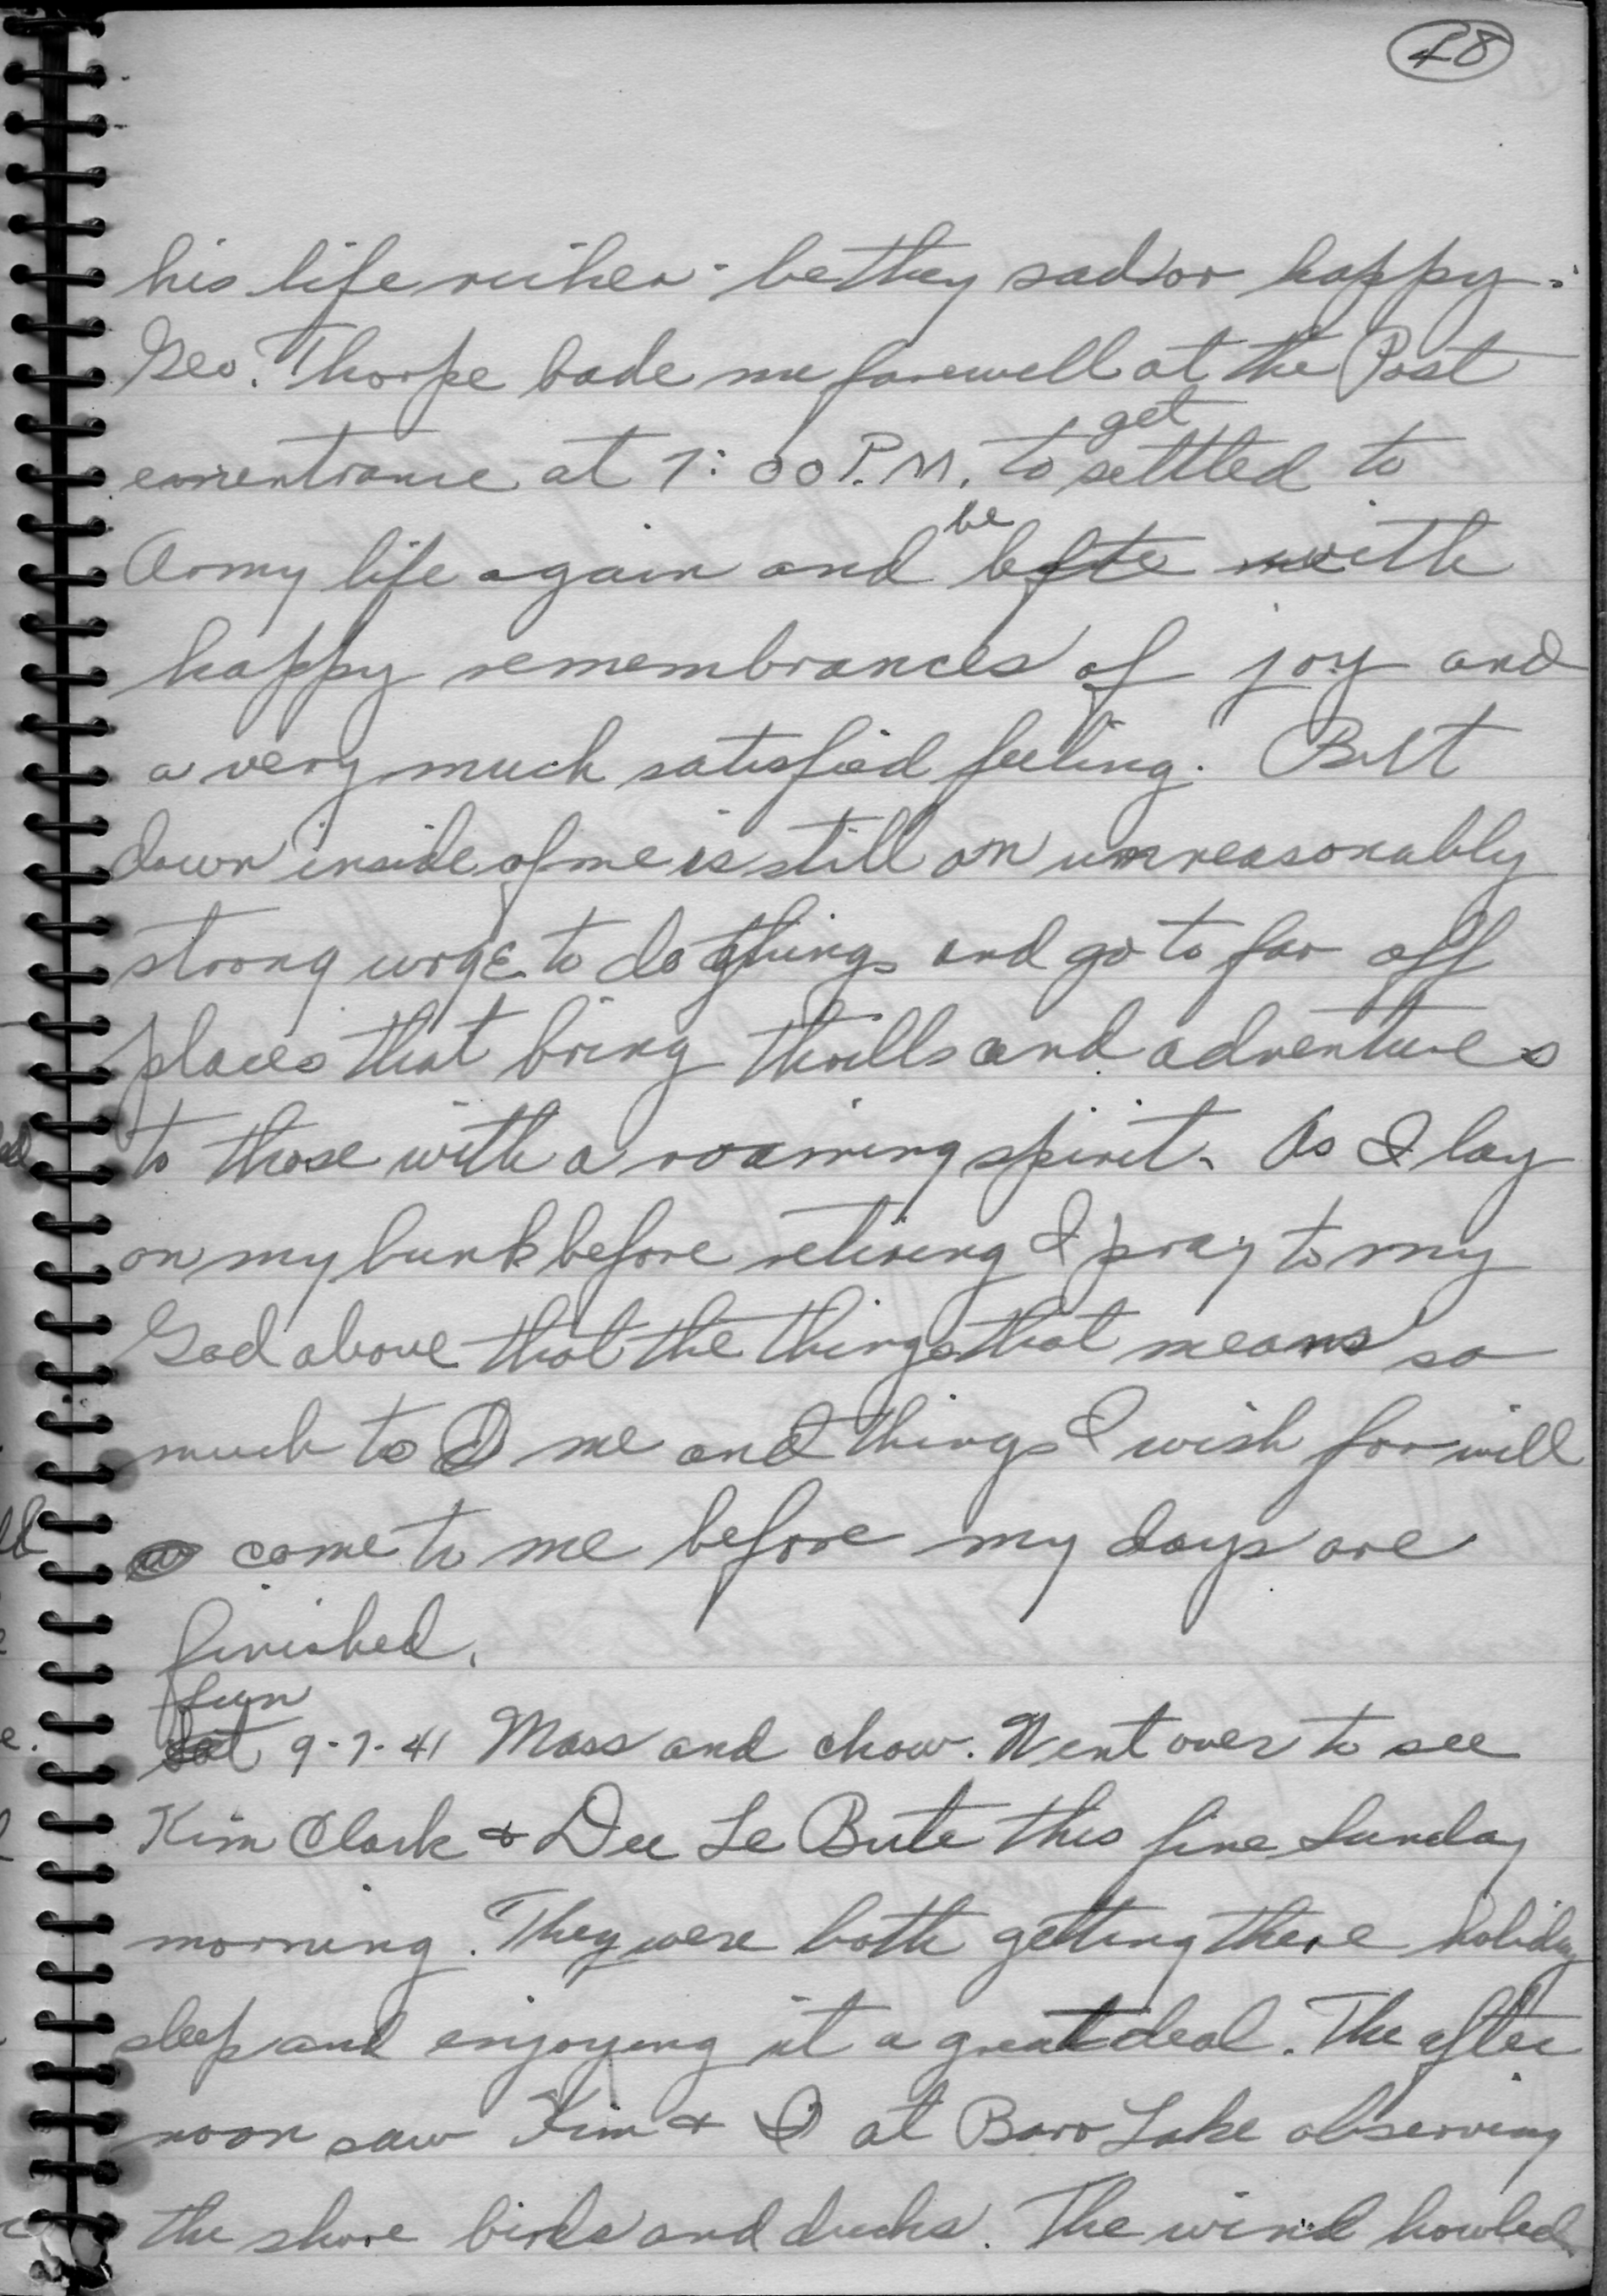 48
his life richer - be they sad or happy.
Geo. Thorpe bade me farewell at the Post
enrentrance at 7:00 P.M. to get settled to
Army life again and be left with
happy remembrances of joy and
a very much satisfied feeling. But
down inside of me is still an unreasonably
strong urge to do things and go to far off
places that bring thrills and adventures
to those with a roaming spirit. As I lay
on my bunk before retiring I pray to my
God above that the things that means so
much to me and things I wish for will
come to me before my days are
finished.
Sun
Sat 9-7-41 Mass and chow. Went over to see
Kim Clark & Dee Le Bute this fine Sunday
morning. They were both getting there holiday
sleep and enjoying it a great deal. The after
noon saw Kim & I at Baro Lake observing
the shore birds and ducks. The wind howled